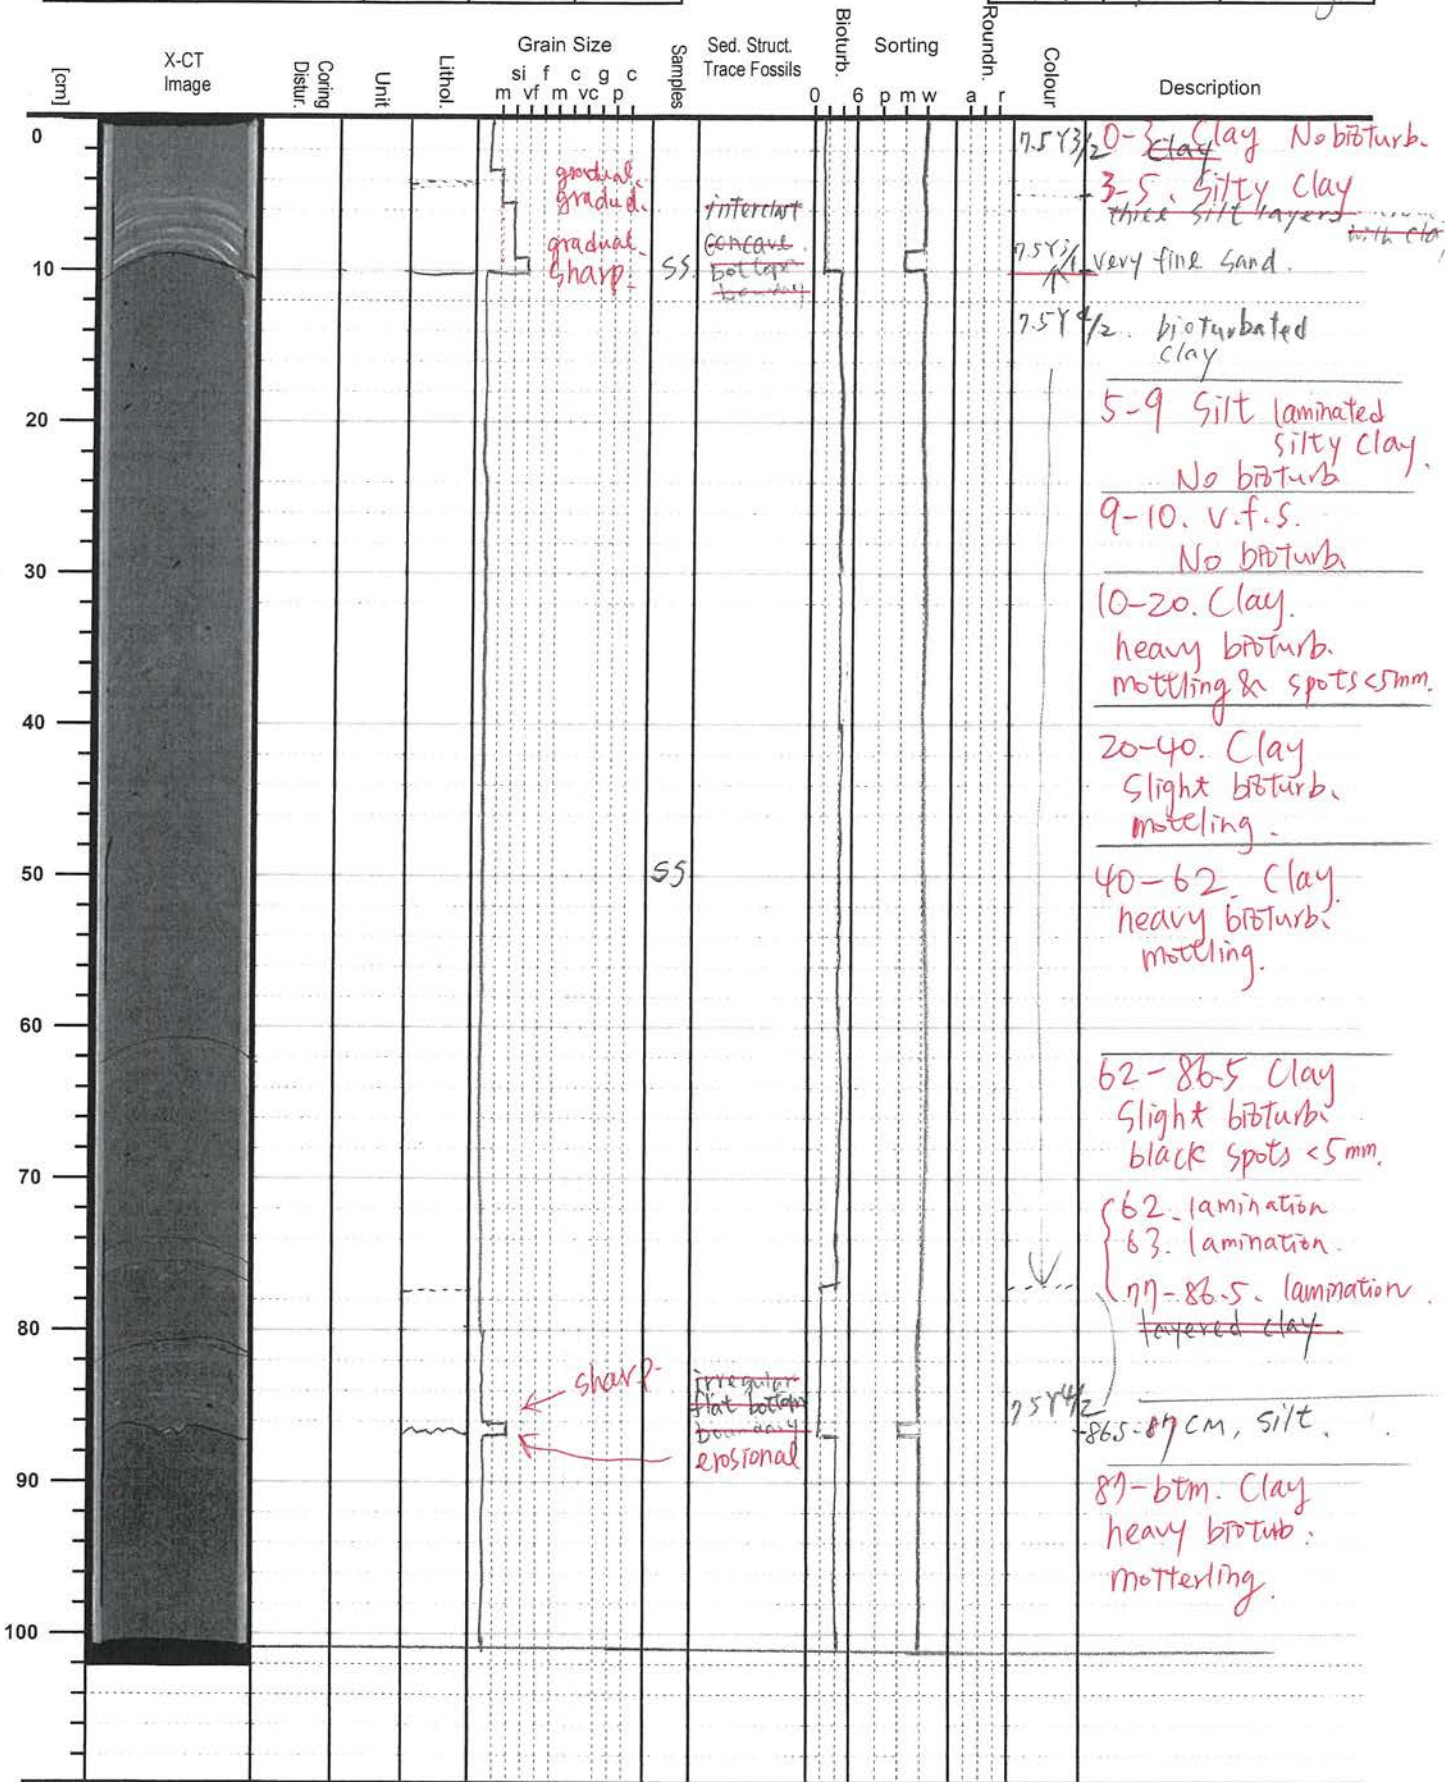 [cm]
X-CT
Image
Coring
Distur.
Unit
Lithol.
Grain Size
si f c g c
m vf m vc p
Samples
Sed. Struct.
Trace Fossils
Bioturb.
0 6
Sorting
p m w
Roundn.
a r
Colour
Description
0
10
20
30
40
50
60
70
80
90
100
gradual.
gradual.
gradual.
sharp.
SS.
SS
interclast
concave
bottom
boundary
sharp
irregular
flat bottom
boundary
erosional
7.5Y3/2
7.5Y3/1
7.5Y4/2.
7.5Y4/2
0-3. Clay No bioturb.
Clay
3-5. Silty Clay
three silt layers
with cla
very fine sand.
bioturbated
clay
5-9 Silt laminated
silty clay.
No bioturb
9-10. V.f.s.
No bioturb.
10-20. Clay.
heavy bioturb.
mottling & spots <5mm.
20-40. Clay
Slight bioturb.
motteling.
40-62. Clay
heavy bioturb.
mottling.
62-86.5 Clay
Slight bioturb.
black spots <5mm.
62. lamination
63. lamination.
77-86.5. lamination.
layered clay.
86.5-87 cm, silt.
87-btm. Clay
heavy bioturb.
motterling.